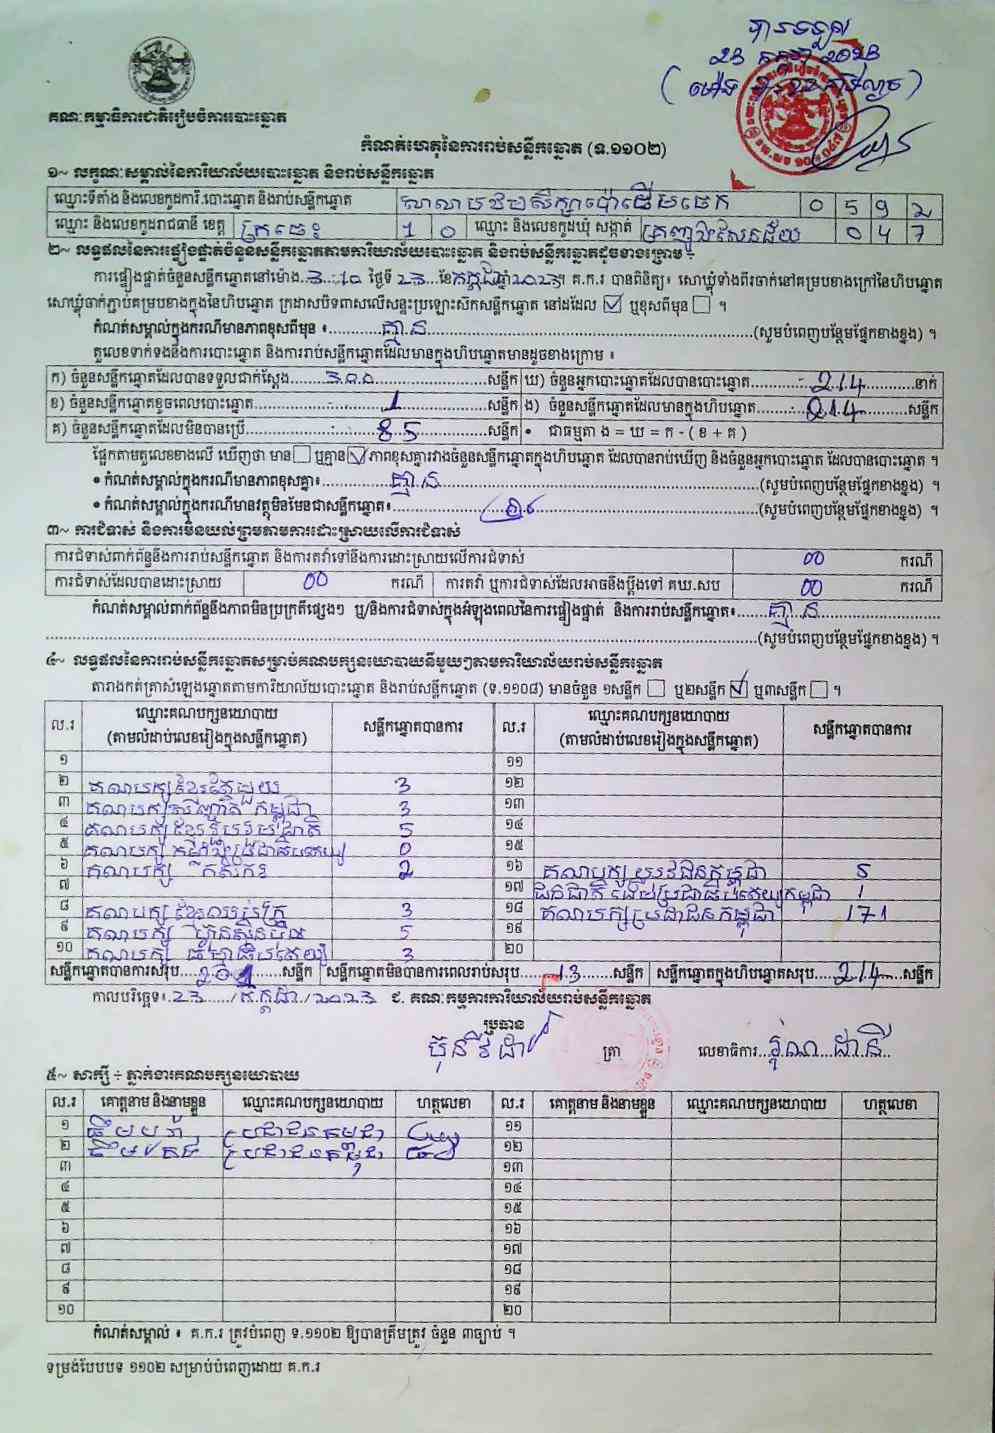 បានទទួល
23 កក្កដា 2023
គណៈកម្មាធិការជាតិរៀបចំការបោះឆ្នោត
កំណត់ហេតុនៃការរាប់សន្លឹកឆ្នោត (ទ.១១០២)
១~ លក្ខណៈសម្គាល់នៃការិយាល័យបោះឆ្នោត និងរាប់សន្លឹកឆ្នោត
ឈ្មោះទីតាំង និងលេខកូដការិ.បោះឆ្នោត និងរាប់សន្លឹកឆ្នោត 0 5 9 2
ឈ្មោះ និងលេខកូដរាជធានី ខេត្ត ក្រចេះ 1 0 ឈ្មោះ និងលេខកូដឃុំ សង្កាត់ គ្រញូងសែនជ័យ 0 4 7
២~ លទ្ធផលនៃការផ្ទៀងផ្ទាត់ចំនួនសន្លឹកឆ្នោតតាមការិយាល័យបោះឆ្នោត និងរាប់សន្លឹកឆ្នោតដូចខាងក្រោម ÷
ការផ្ទៀងផ្ទាត់ចំនួនសន្លឹកឆ្នោតនៅម៉ោង 3:10 ថ្ងៃទី 23 ខែ កក្កដា ឆ្នាំ 2023 គ.ក.រ បានពិនិត្យ៖ សោឃ្លុំទាំងពីរចាក់នៅគម្របខាងក្រៅនៃហិបឆ្នោត
សោឃ្លុំចាក់ភ្ជាប់គម្របខាងក្នុងនៃហិបឆ្នោត ក្រដាសបិទពាសលើសន្ទះប្រឡោះសឹកសន្លឹកឆ្នោត នៅដដែល ☑ ឬខុសពីមុន ☐ ។
កំណត់សម្គាល់ក្នុងករណីមានភាពខុសពីមុន ៖ គ្មាន (សូមបំពេញបន្ថែមផ្នែកខាងខ្នង) ។
តួលេខទាក់ទងនឹងការបោះឆ្នោត និងការរាប់សន្លឹកឆ្នោតដែលមានក្នុងហិបឆ្នោតមានដូចខាងក្រោម ៖
ក) ចំនួនសន្លឹកឆ្នោតដែលបានទទួលជាក់ស្តែង 300 សន្លឹក ឃ) ចំនួនអ្នកបោះឆ្នោតដែលបានបោះឆ្នោត 214 នាក់
ខ) ចំនួនសន្លឹកឆ្នោតខូចពេលបោះឆ្នោត 1 សន្លឹក ង) ចំនួនសន្លឹកឆ្នោតដែលមានក្នុងហិបឆ្នោត 214 សន្លឹក
គ) ចំនួនសន្លឹកឆ្នោតដែលមិនបានប្រើ 85 សន្លឹក • ជាធម្មតា ង = ឃ = ក - ( ខ + គ )
ផ្អែកតាមតួលេខខាងលើ ឃើញថា មាន ☐ ឬគ្មាន ☑ ភាពខុសគ្នារវាងចំនួនសន្លឹកឆ្នោតក្នុងហិបឆ្នោត ដែលបានរាប់ឃើញ និងចំនួនអ្នកបោះឆ្នោត ដែលបានបោះឆ្នោត ។
• កំណត់សម្គាល់ក្នុងករណីមានភាពខុសគ្នា៖ គ្មាន (សូមបំពេញបន្ថែមផ្នែកខាងខ្នង) ។
• កំណត់សម្គាល់ក្នុងករណីមានវត្ថុមិនមែនជាសន្លឹកឆ្នោត៖ (សូមបំពេញបន្ថែមផ្នែកខាងខ្នង) ។
៣~ ការជំទាស់ និងការមិនយល់ព្រមតាមការដោះស្រាយលើការជំទាស់
ការជំទាស់ពាក់ព័ន្ធនឹងការរាប់សន្លឹកឆ្នោត និងការតវ៉ាទៅនឹងការដោះស្រាយលើការជំទាស់ 00 ករណី
ការជំទាស់ដែលបានដោះស្រាយ 00 ករណី ការតវ៉ា ឬការជំទាស់ដែលអាចនឹងប្តឹងទៅ គឃ.សប 00 ករណី
កំណត់សម្គាល់ពាក់ព័ន្ធនឹងភាពមិនប្រក្រតីផ្សេងៗ ឬ/និងការជំទាស់ក្នុងអំឡុងពេលនៃការផ្ទៀងផ្ទាត់ និងការរាប់សន្លឹកឆ្នោត៖ គ្មាន
(សូមបំពេញបន្ថែមផ្នែកខាងខ្នង) ។
៤~ លទ្ធផលនៃការរាប់សន្លឹកឆ្នោតសម្រាប់គណបក្សនយោបាយនីមួយៗតាមការិយាល័យរាប់សន្លឹកឆ្នោត
តារាងកត់ត្រាសំឡេងឆ្នោតតាមការិយាល័យបោះឆ្នោត និងរាប់សន្លឹកឆ្នោត (ទ.១១០៨) មានចំនួន ១សន្លឹក ☐ ឬ២សន្លឹក ☑ ឬ៣សន្លឹក ☐ ។
ល.រ ឈ្មោះគណបក្សនយោបាយ (តាមលំដាប់លេខរៀងក្នុងសន្លឹកឆ្នោត) សន្លឹកឆ្នោតបានការ ល.រ ឈ្មោះគណបក្សនយោបាយ (តាមលំដាប់លេខរៀងក្នុងសន្លឹកឆ្នោត) សន្លឹកឆ្នោតបានការ
១ ១១
២ គណបក្សខ្មែរតែមួយ 3 ១២
៣ គណបក្ស កម្ពុជា 3 ១៣
៤ គណបក្សខ្មែររួបរួមជាតិ 5 ១៤
៥ គណបក្ស 0 ១៥
៦ គណបក្ស កសិករ 2 ១៦ គណបក្សយុវជនកម្ពុជា 5
៧ ១៧ ជនជាតិដើមប្រជាធិបតេយ្យកម្ពុជា 1
៨ គណបក្សខ្មែរ 3 ១៨ គណបក្សប្រជាជនកម្ពុជា 171
៩ គណបក្ស ហ្វ៊ុនស៊ិនប៉ិច 5 ១៩
១០ គណបក្ស ធម្មាធិបតេយ្យ 3 ២០
សន្លឹកឆ្នោតបានការសរុប 201 សន្លឹក សន្លឹកឆ្នោតមិនបានការពេលរាប់សរុប 13 សន្លឹក សន្លឹកឆ្នោតក្នុងហិបឆ្នោតសរុប 214 សន្លឹក
កាលបរិច្ឆេទ៖ 23 / កក្កដា / 2023 ជ. គណៈកម្មការការិយាល័យរាប់សន្លឹកឆ្នោត
ប្រធាន
ត្រា លេខាធិការ
៥~ សាក្សី ÷ ភ្នាក់ងារគណបក្សនយោបាយ
ល.រ គោត្តនាម និងនាមខ្លួន ឈ្មោះគណបក្សនយោបាយ ហត្ថលេខា ល.រ គោត្តនាម និងនាមខ្លួន ឈ្មោះគណបក្សនយោបាយ ហត្ថលេខា
១ ប្រជាជនកម្ពុជា ១១
២ ប្រជាជនកម្ពុជា ១២
៣ ១៣
៤ ១៤
៥ ១៥
៦ ១៦
៧ ១៧
៨ ១៨
៩ ១៩
១០ ២០
កំណត់សម្គាល់ ៖ គ.ក.រ ត្រូវបំពេញ ទ.១១០២ ឱ្យបានត្រឹមត្រូវ ចំនួន ៣ច្បាប់ ។
ទម្រង់បែបបទ ១១០២ សម្រាប់បំពេញដោយ គ.ក.រ